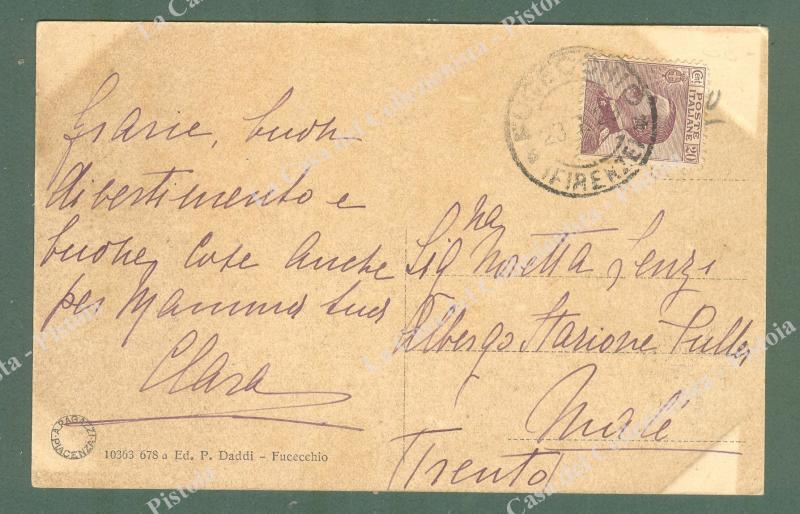 Grazie, buon
divertimento e
buone cose anche
per Mamma tua
Clara
Sig.na Noretta Lenzi
Albergo Stazione
Malè
Trento
10363 678 a Ed. P. Daddi - Fucecchio
A. RAGAZZI
PIACENZA
FUCECCHIO
23
(FIRENZE)
POSTE
ITALIANE
Cent
20
La Casa del Collezionista - Pistoia